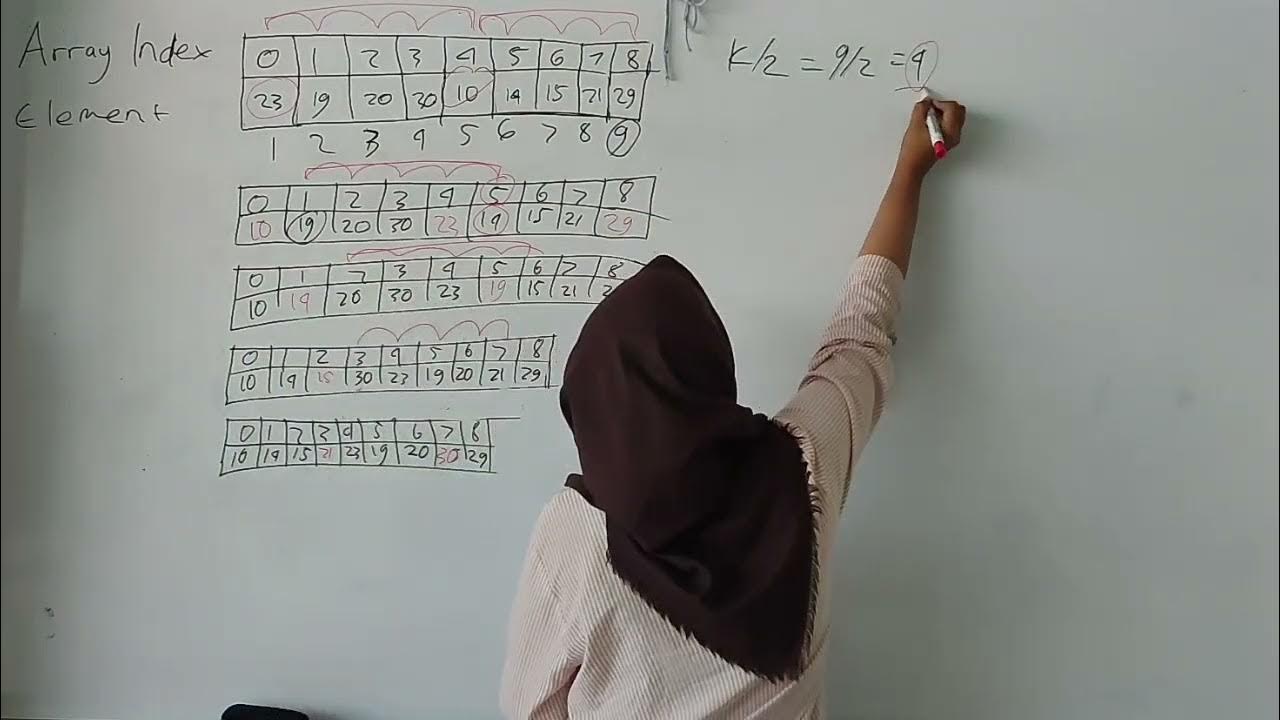 Array Index 0 1 2 3 4 5 6 7 8
Element 23 19 20 30 10 14 15 21 29
1 2 3 4 5 6 7 8 9
K/2 = 9/2 = 4
0 1 2 3 4 5 6 7 8
10 19 20 30 23 14 15 21 29
0 1 2 3 4 5 6 7 8
10 14 20 30 23 19 15 21
0 1 2 3 4 5 6 7 8
10 14 15 30 23 19 20 21 29
0 1 2 3 4 5 6 7 8
10 14 15 21 23 19 20 30 29